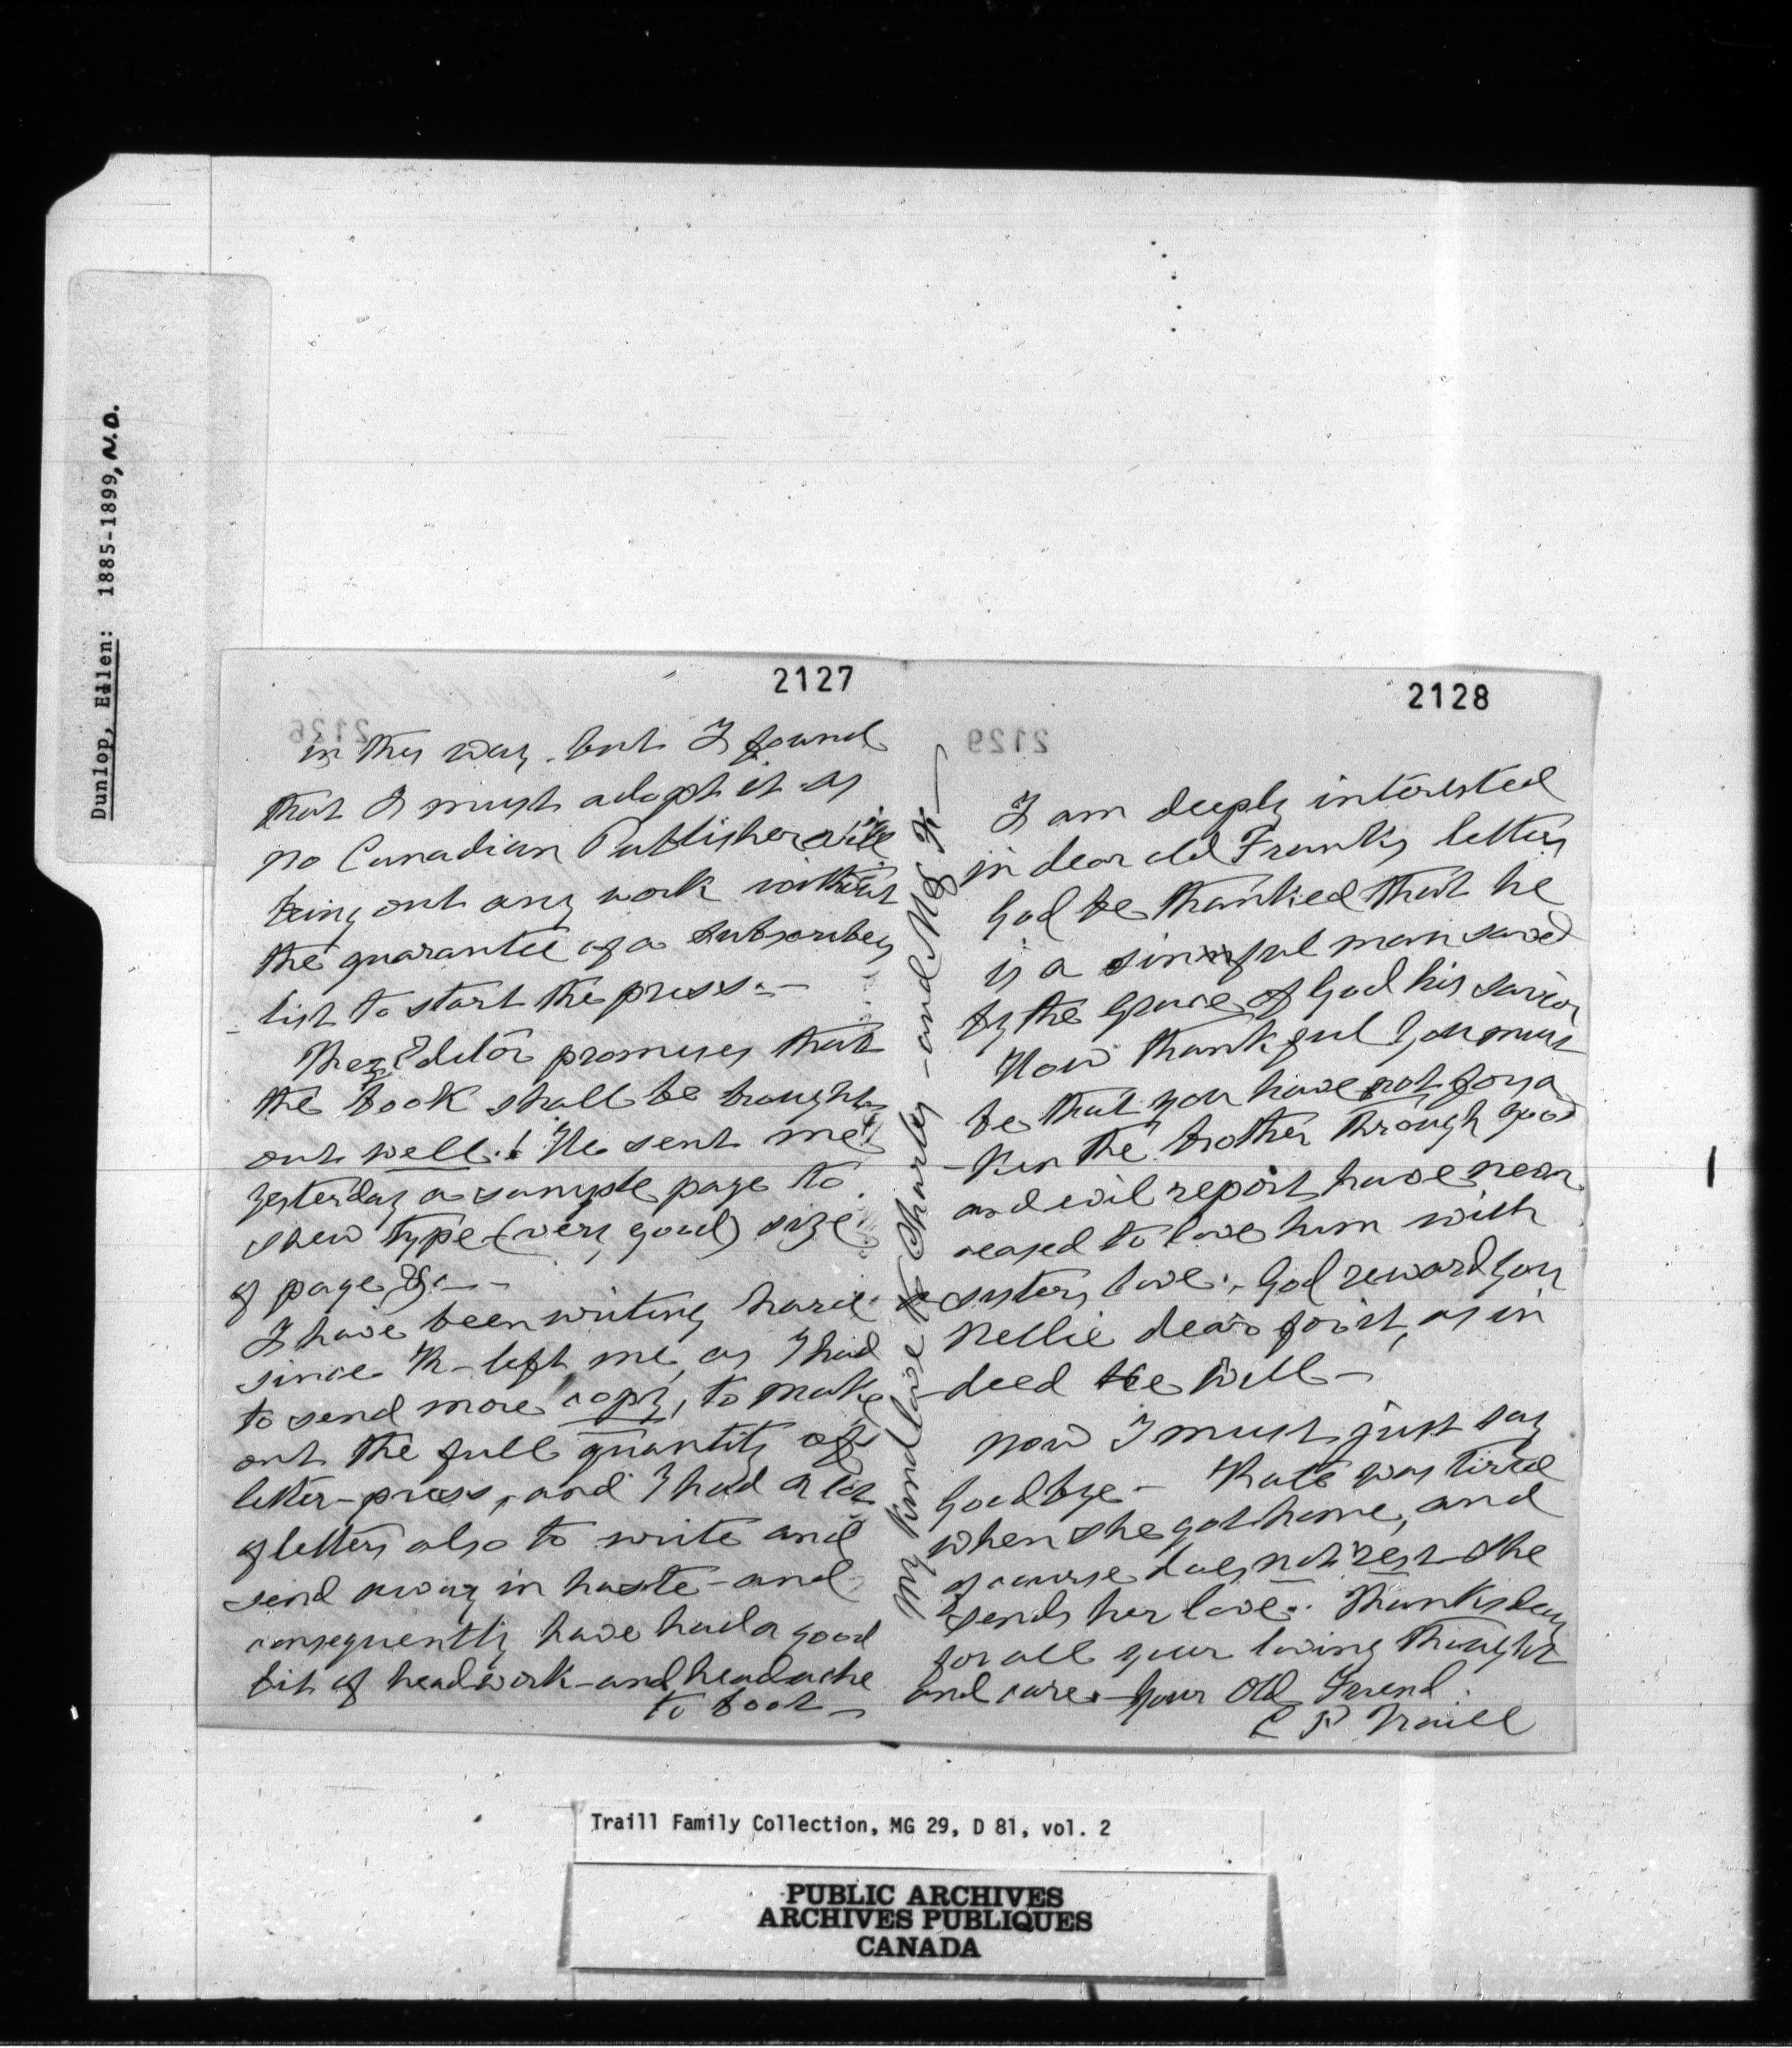 Dunlop, Ellen: 1885-1899, N.D.
2127
in this way. but I found
that I must adopt it as
no Canadian Publisher will
bring out any work without
the guarantee of a subscribers
list to start the press.—
The Editor promises that
the book shall be brought
out well.! He sent me
yesterday a sample page to
shew type (very good) size
of page &c—
I have been writing hard
since K— left me, as I had
to send more copy, to make
out the full quantity of
letter-press, and I had a lot
of letters also to write and
send away in haste — and
consequently have had a good
bit of headwork — and headache
to boot —
My kind love to Charly — and Mrs
2128
I am deeply interested
in dear old Franks letter
God be thanked that he
is a sinful man saved
by the Grace of God his savior
How thankful you must
be that you have not forsa
-ken the brother through good
and evil report have never
ceased to love him with
sisters love. God reward you
Nellie dear for it, as in
-deed He will —
Now I must just say
Goodbye — Kate was tired
when she got home, and
of course does not rest she
sends her love. Thanks dear
for all your loving thought
and care — Your Old Friend
C P Traill
2126
2129
Traill Family Collection, MG 29, D 81, vol. 2
PUBLIC ARCHIVES
ARCHIVES PUBLIQUES
CANADA